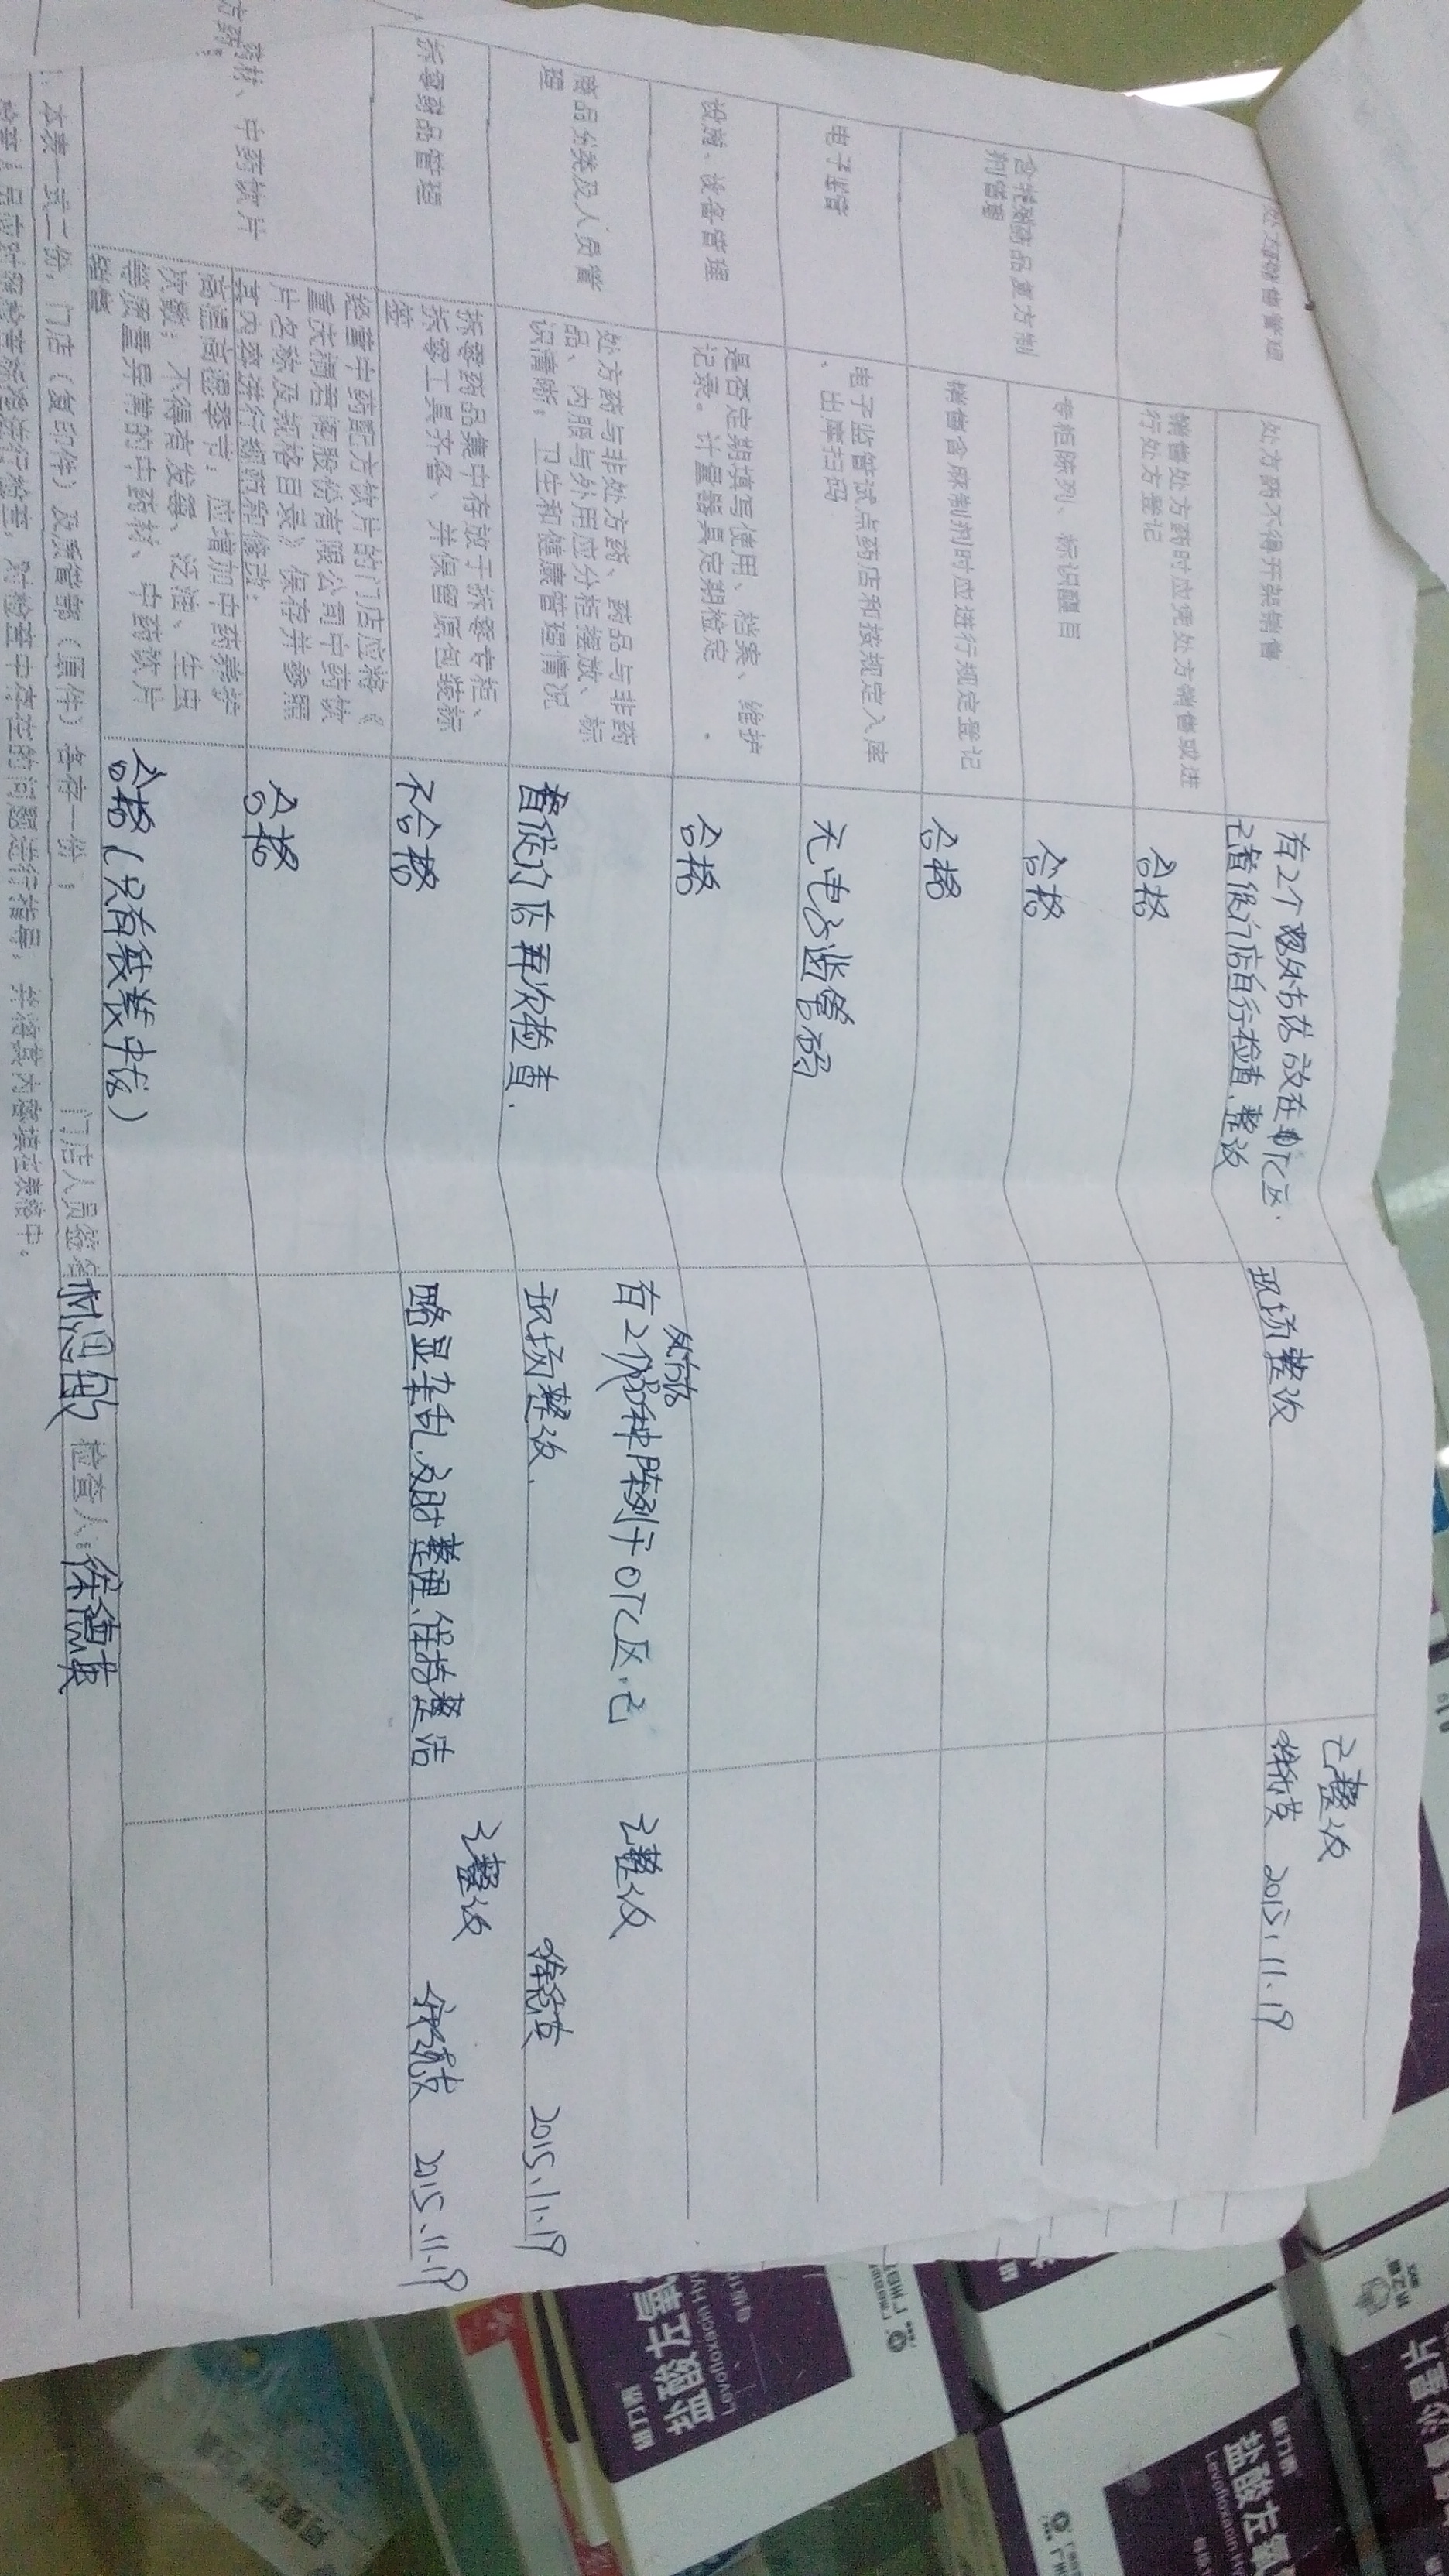 处方药销售管理
处方药不得开架销售
有2个 外 药放在OTC区.
已督促门店自行检查、整改
现场整改
已整改
2015.11.19
销售处方药时应凭处方销售或进
行处方登记
合格
含特殊药品复方制
剂管理
专柜陈列、标识醒目
合格
销售含麻制剂时应进行规定登记
合格
电子监管
电子监管试点药店和按规定入库
、出库扫码
无电子监管码
设施、设备管理
是否定期填写使用、档案、维护
记录。计量器具定期检定
合格
商品分类及人员管
理
处方药与非处方药、药品与非药
品、内服与外用应分柜摆放、标
识清晰；卫生和健康管理情况
督促门店再次检查.
处方药
有2个品种陈列于OTC区.已
现场整改.
已整改
2015.11.19
拆零药品管理
拆零药品集中存放于拆零专柜、
拆零工具齐备、并保留原包装标
签
不合格
略显杂乱.及时整理、保持整洁
已整改
2015.11.19
药材、中药饮片
经营中药配方饮片的门店应将《
重庆桐君阁股份有限公司中药饮
片名称及规格目录》保存并参照
其内容进行摆斗和修改；
合格
高温高湿季节，应增加中药养护
次数；不得有发霉、泛油、生虫
等质量异常的中药材、中药饮片
销售
合格(只有袋装中药)
本表一式二份，门店（复印件）及质管部（原件）各存一份；
门店人员签名
检查人：徐德英
检查人员应对照检查标准进行检查，对检查中存在的问题进行指导，并将其内容填在表格中。
盐酸左氧
Levofloxacin
盐酸左氧
Levofloxacin